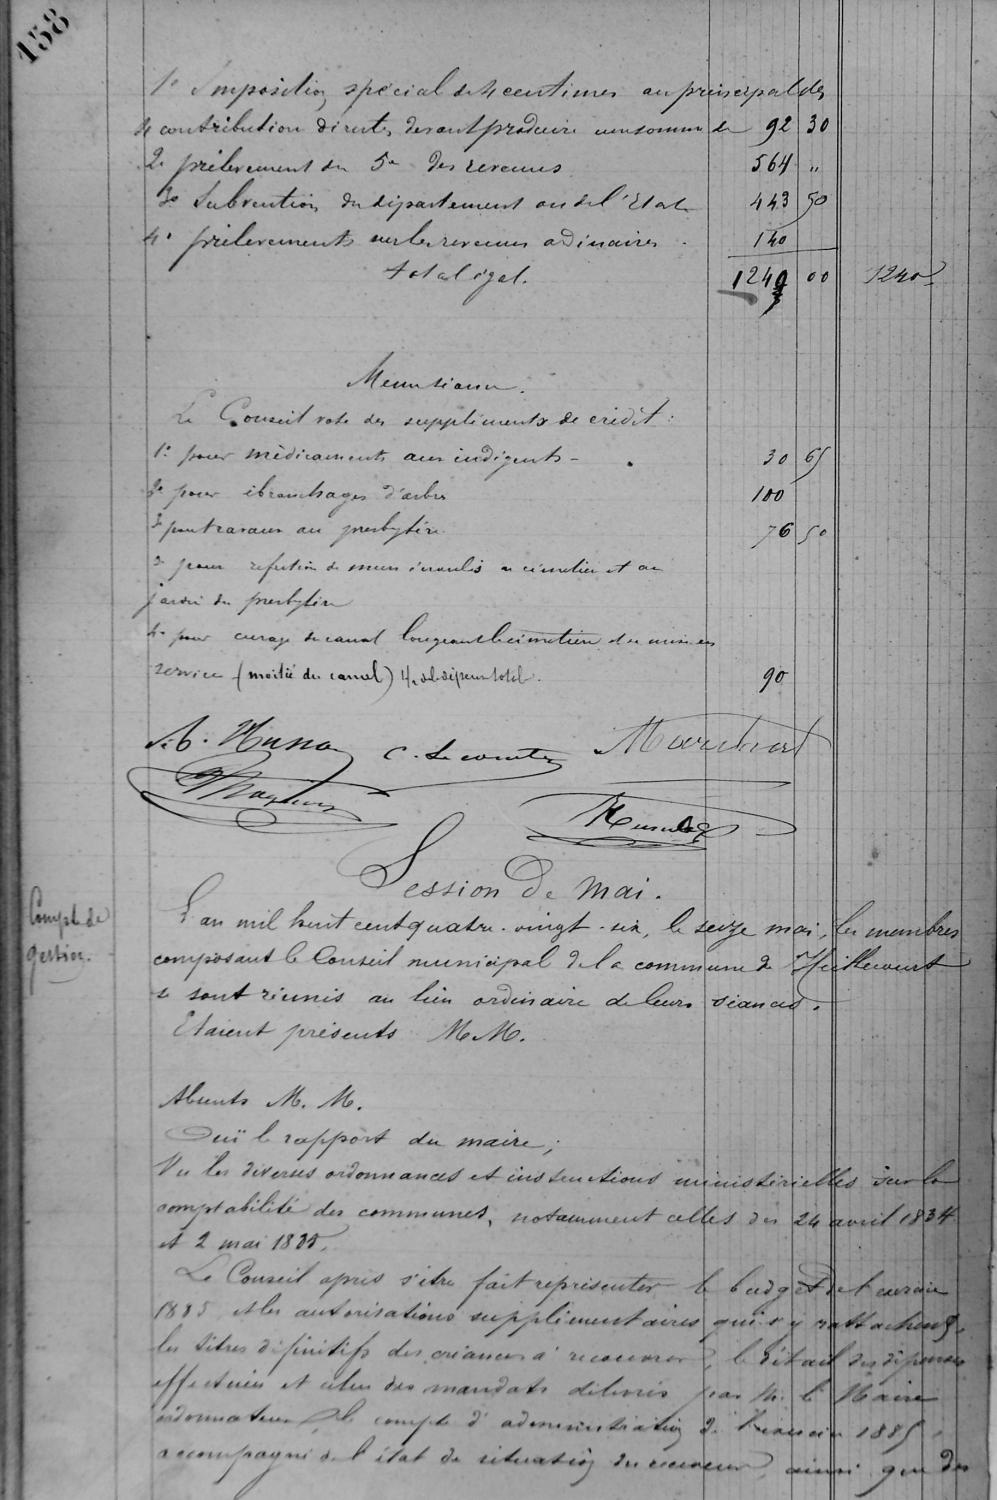 158
1° Imposition spécial de 4 centimes au principal des
4 contribution directes devant produire une somme de 92 30
2° prélèvement du 5e des revenus 564 "
3° Subvention du département ou de l'Etat 443 50
4° prélèvements sur les revenus ordinaires. 140
total égal. 1240 00 1240
Le Conseil vote des suppléments de crédit:
1° pour médicaments aux indigents - 30 65
2° pour ébranchages d'arbres 100
3° pour travaux au presbytère 76 50
3° pour réfection de murs écroulés au cimetière et au
jardin du presbytère
4° pour curage du canal longeant le cimetière et
service (moitié du canal) 1/2 de la dépense totale. 90
C. Lecomte
Session De mai.
Compte de
gestion.
L'an mil huit cent quatre-vingt-six, le seize mai, les membres
composant le Conseil municipal de la commune de Heillecourt
se sont réunis au lieu ordinaire de leurs séances.
Etaient présents M.M.
Absents M. M.
Ouï le rapport du maire;
Vu les diverses ordonnances et instructions ministérielles sur la
comptabilité des communes, notamment celles des 24 avril 1834
et 2 mai
Le Conseil après s'être fait représenter le budget de l'exercice
1885 et les autorisations supplémentaires qui s'y rattachent,
les titres définitifs des créances à recouvrer, le détail des dépenses
effectuées et celui des mandats délivrés par M. le Maire
ordonnateur, le compte d'administration de l'exercice 1885,
accompagné de l'état de situation du receveur, ainsi que des